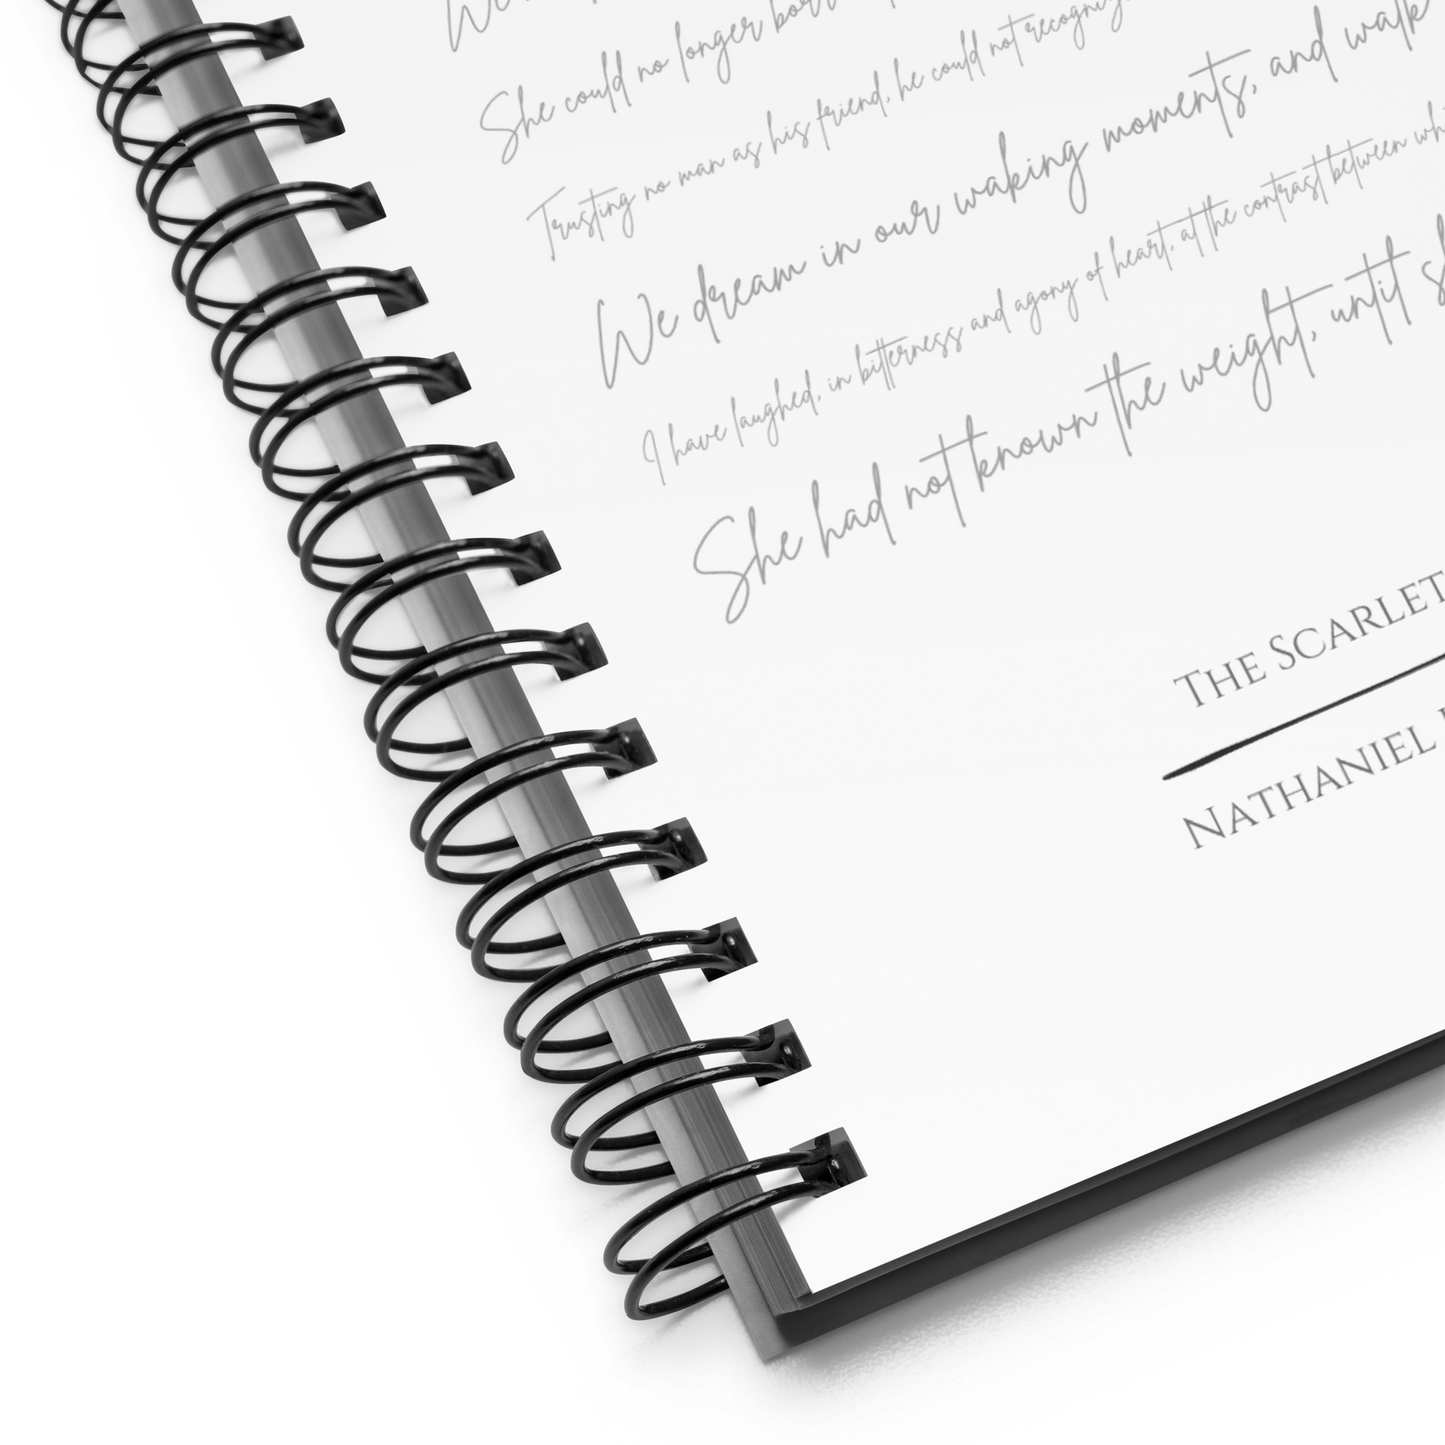 We
She could no longer
Trusting no man as his friend, he could not
We dream in our waking moments, and walk
I have laughed, in bitterness and agony of heart, at the contrast between
She had not known the weight, until
THE SCARLET
NATHANIEL